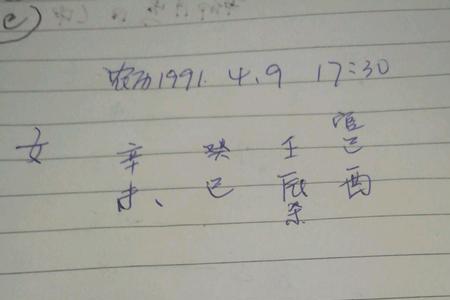 农历1991. 4.9 17:30
官
女 辛 癸 壬 己
未、 巳 辰 酉
杀